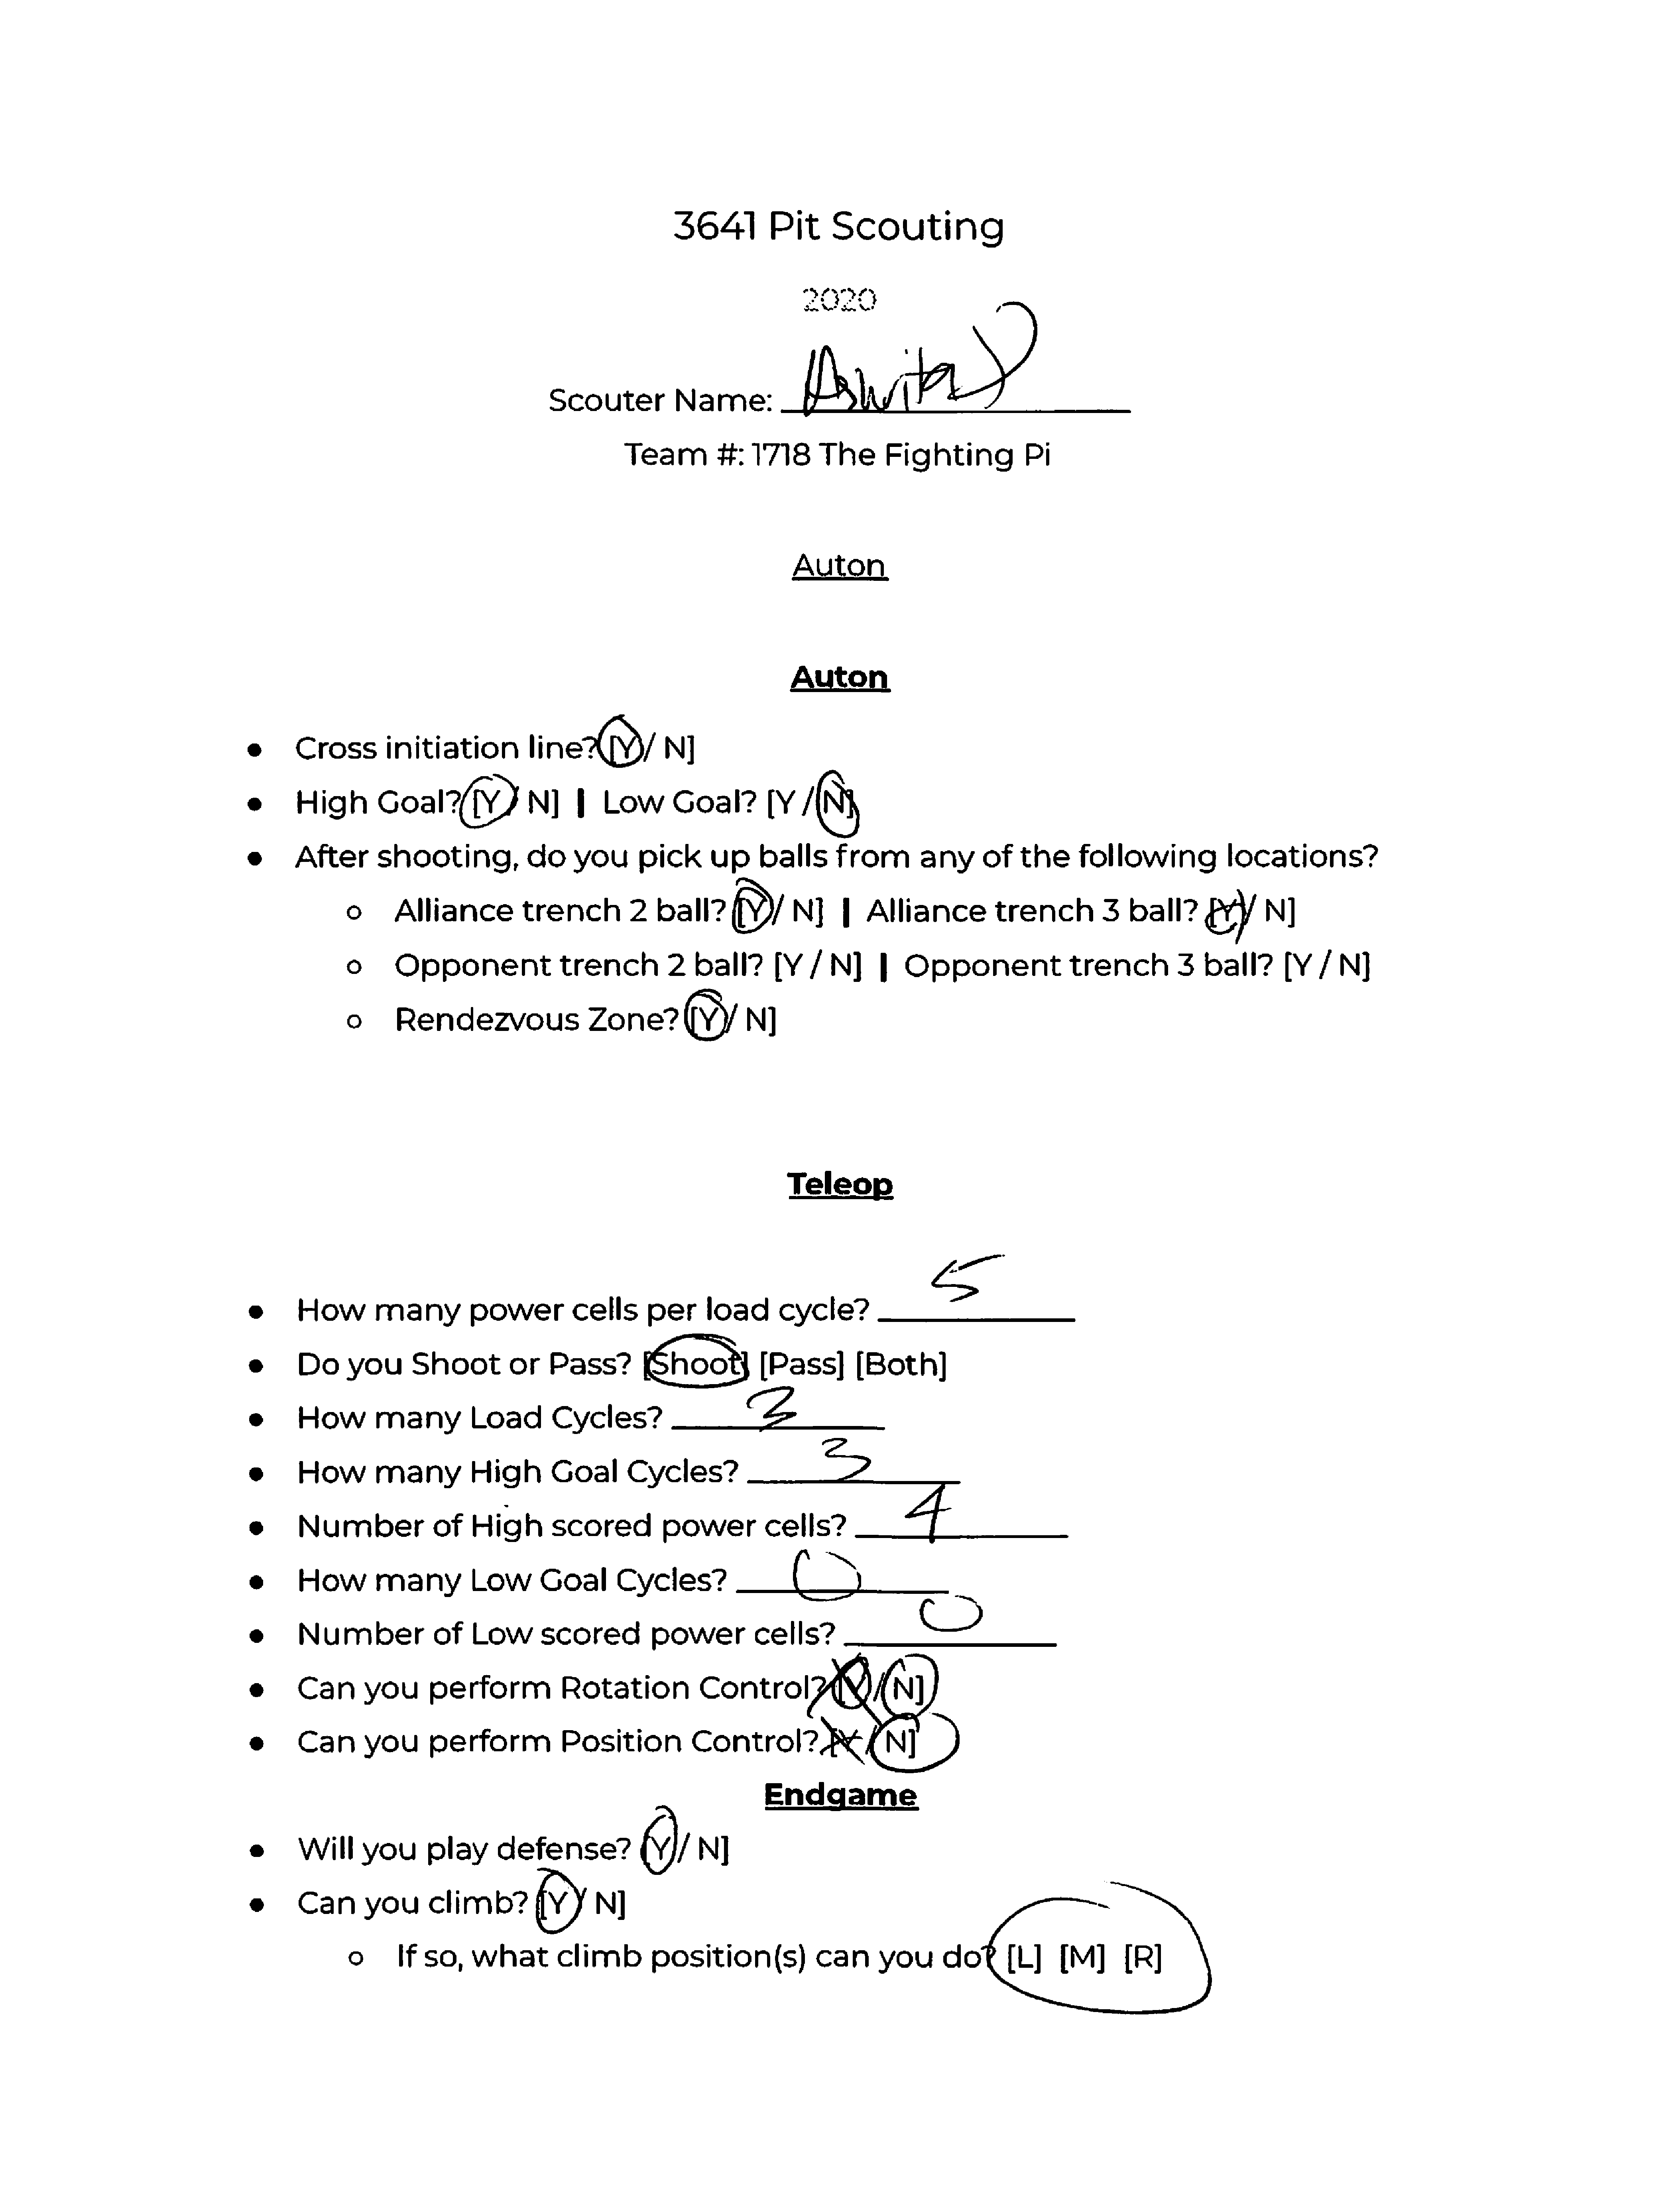 3641 Pit Scouting
2020
Scouter Name:
Team #: 1718 The Fighting Pi
Auton
Auton
● Cross initiation line? [Y / N]
● High Goal? [Y / N] | Low Goal? [Y / N]
● After shooting, do you pick up balls from any of the following locations?
○ Alliance trench 2 ball? [Y / N] | Alliance trench 3 ball? [Y / N]
○ Opponent trench 2 ball? [Y / N] | Opponent trench 3 ball? [Y / N]
○ Rendezvous Zone? [Y / N]
Teleop
● How many power cells per load cycle? 5
● Do you Shoot or Pass? [Shoot] [Pass] [Both]
● How many Load Cycles? 3
● How many High Goal Cycles? 3
● Number of High scored power cells? 4
● How many Low Goal Cycles? 0
● Number of Low scored power cells? 0
● Can you perform Rotation Control? [Y / N]
● Can you perform Position Control? [Y / N]
Endgame
● Will you play defense? [Y / N]
● Can you climb? [Y / N]
○ If so, what climb position(s) can you do? [L] [M] [R]